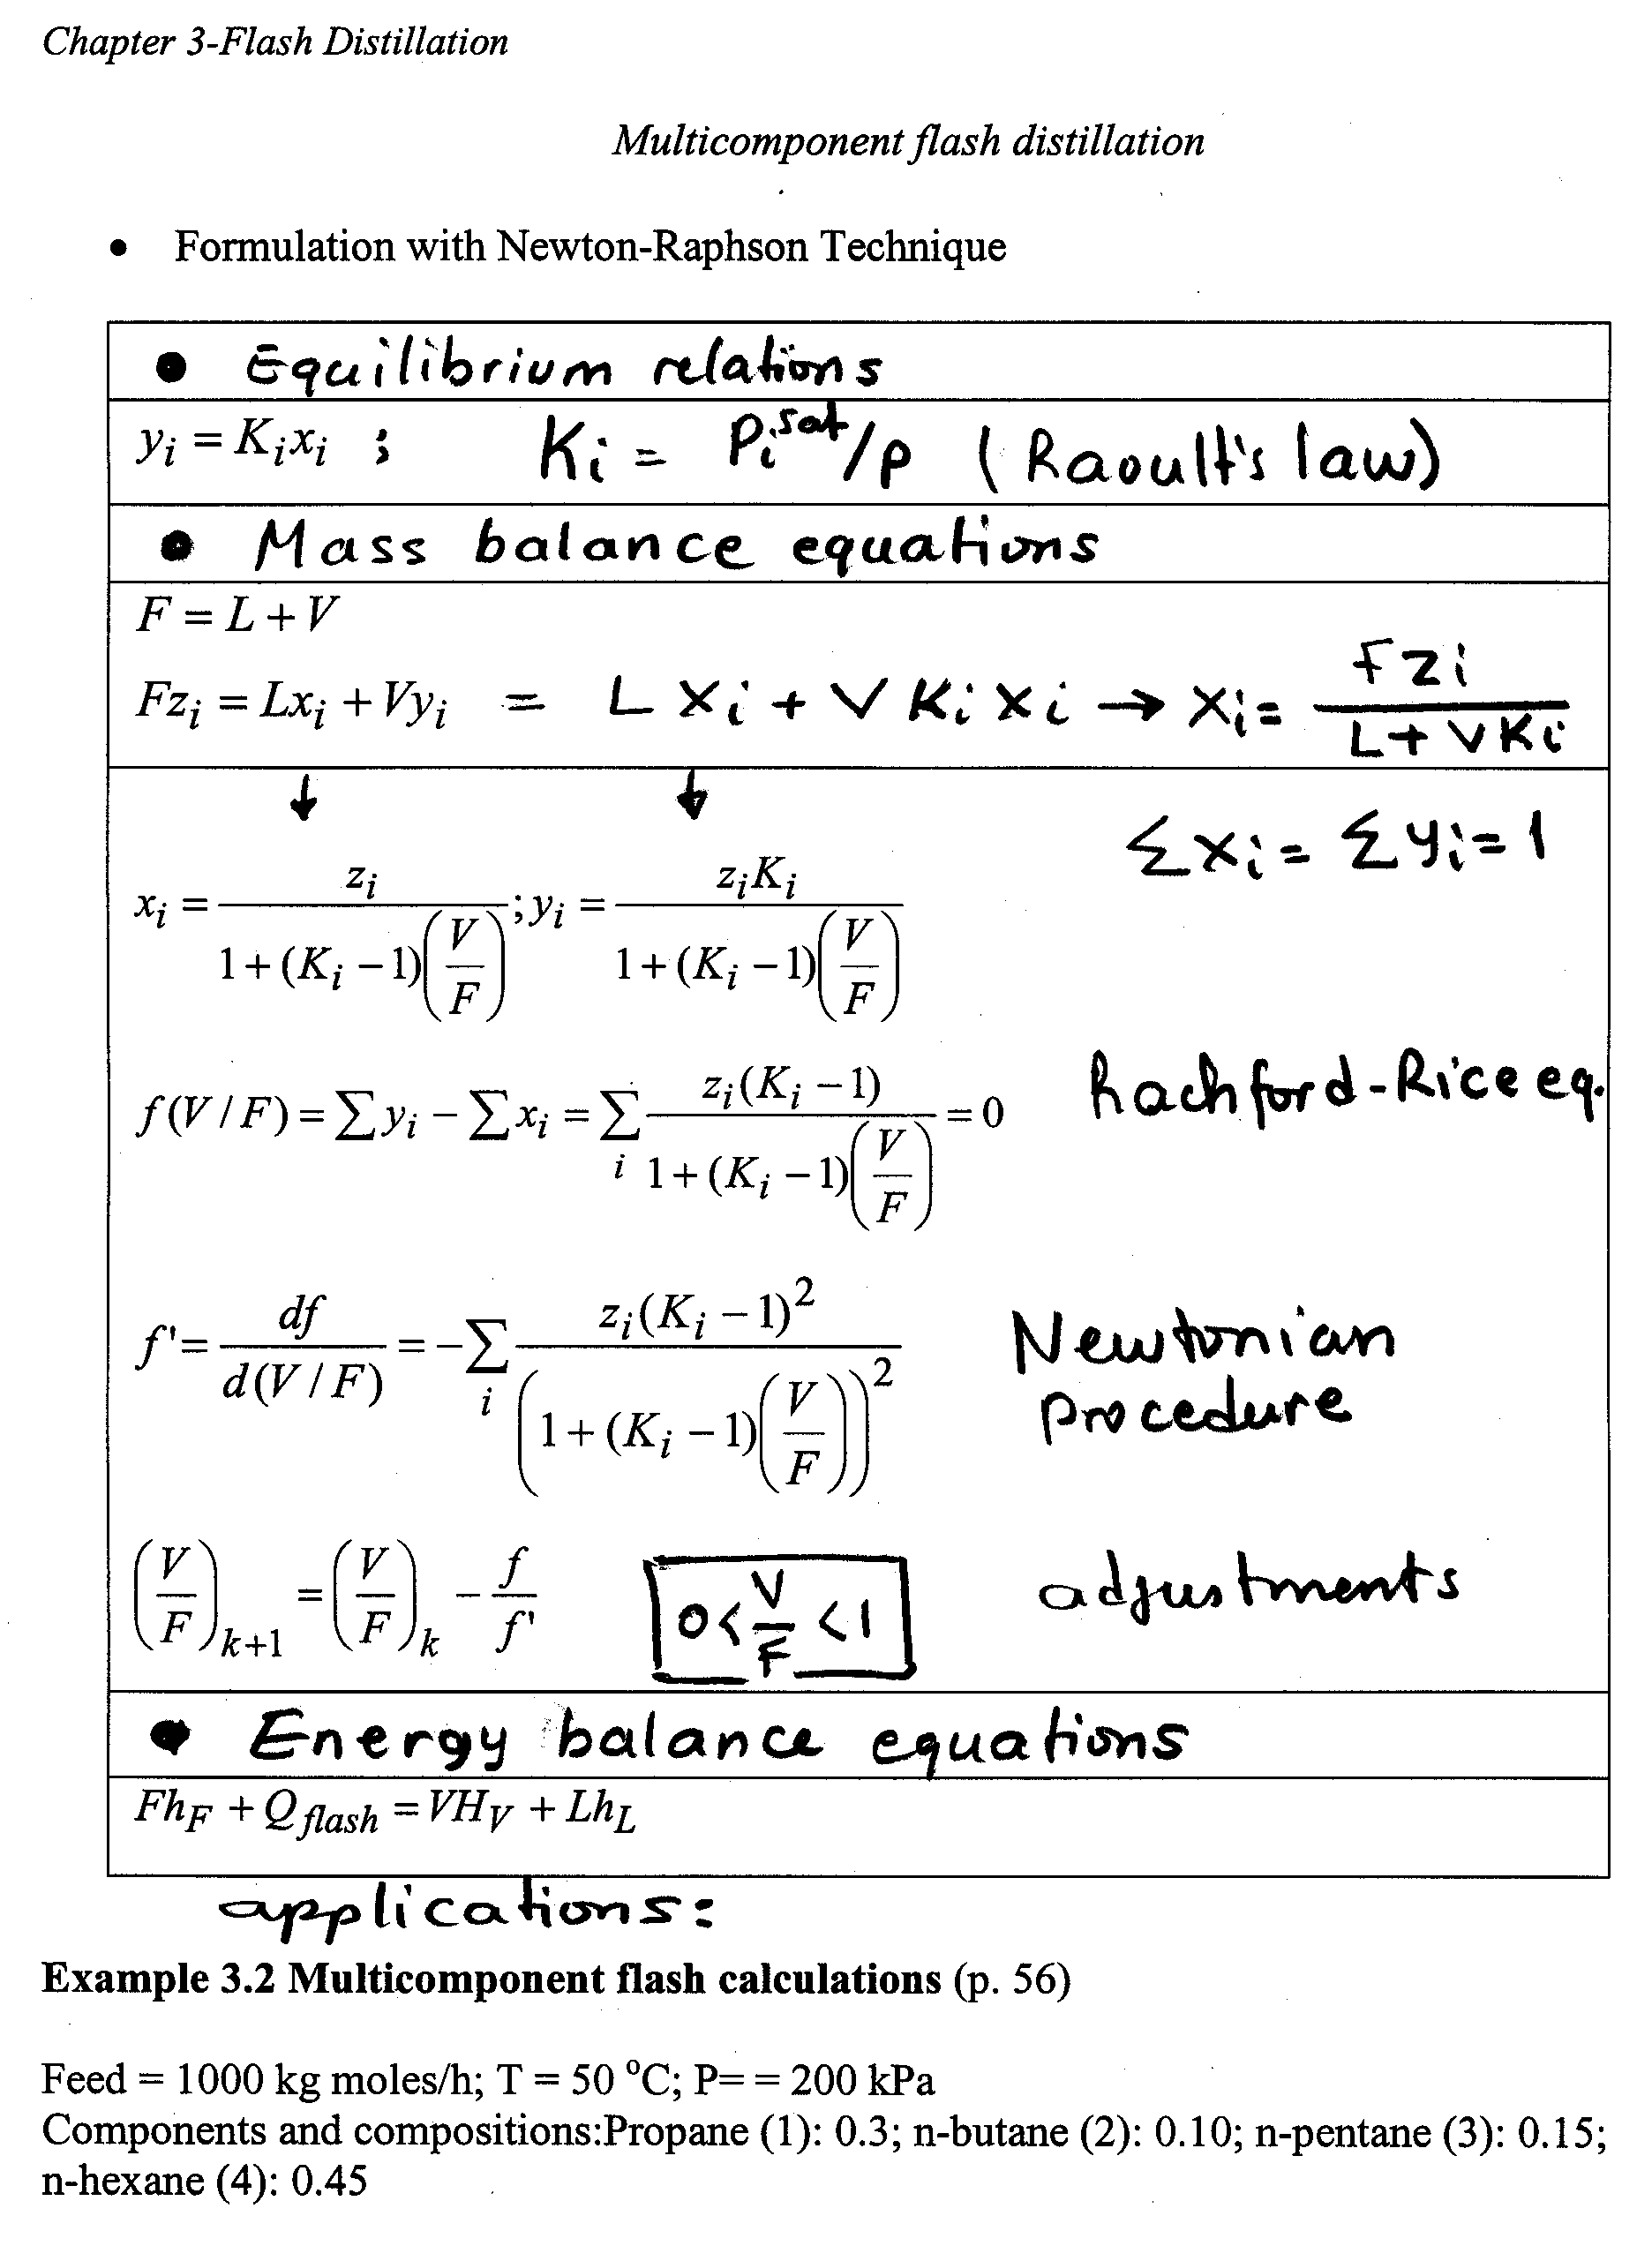 Chapter 3-Flash Distillation
Multicomponent flash distillation
• Formulation with Newton-Raphson Technique
• Equilibrium relations
y_i = K_i x_i ; K_i = P_i^sat/P (Raoult's law)
• Mass balance equations
F = L + V
Fz_i = Lx_i + Vy_i = L x_i + V K_i x_i → x_i = F z_i / (L + V K_i)
↓ ↓
Σx_i = Σy_i = 1
x_i = z_i / (1 + (K_i − 1)(V/F)) ; y_i = z_i K_i / (1 + (K_i − 1)(V/F))
f(V / F) = Σy_i − Σx_i = Σ_i z_i(K_i − 1) / (1 + (K_i − 1)(V/F)) = 0 Rachford-Rice eq.
f' = df / d(V / F) = −Σ_i z_i(K_i − 1)^2 / (1 + (K_i − 1)(V/F))^2 Newtonian
procedure
(V/F)_k+1 = (V/F)_k − f/f' 0 < V/F < 1 adjustments
• Energy balance equations
Fh_F + Q_flash = VH_V + Lh_L
applications:
Example 3.2 Multicomponent flash calculations (p. 56)
Feed = 1000 kg moles/h; T = 50 °C; P= = 200 kPa
Components and compositions:Propane (1): 0.3; n-butane (2): 0.10; n-pentane (3): 0.15;
n-hexane (4): 0.45